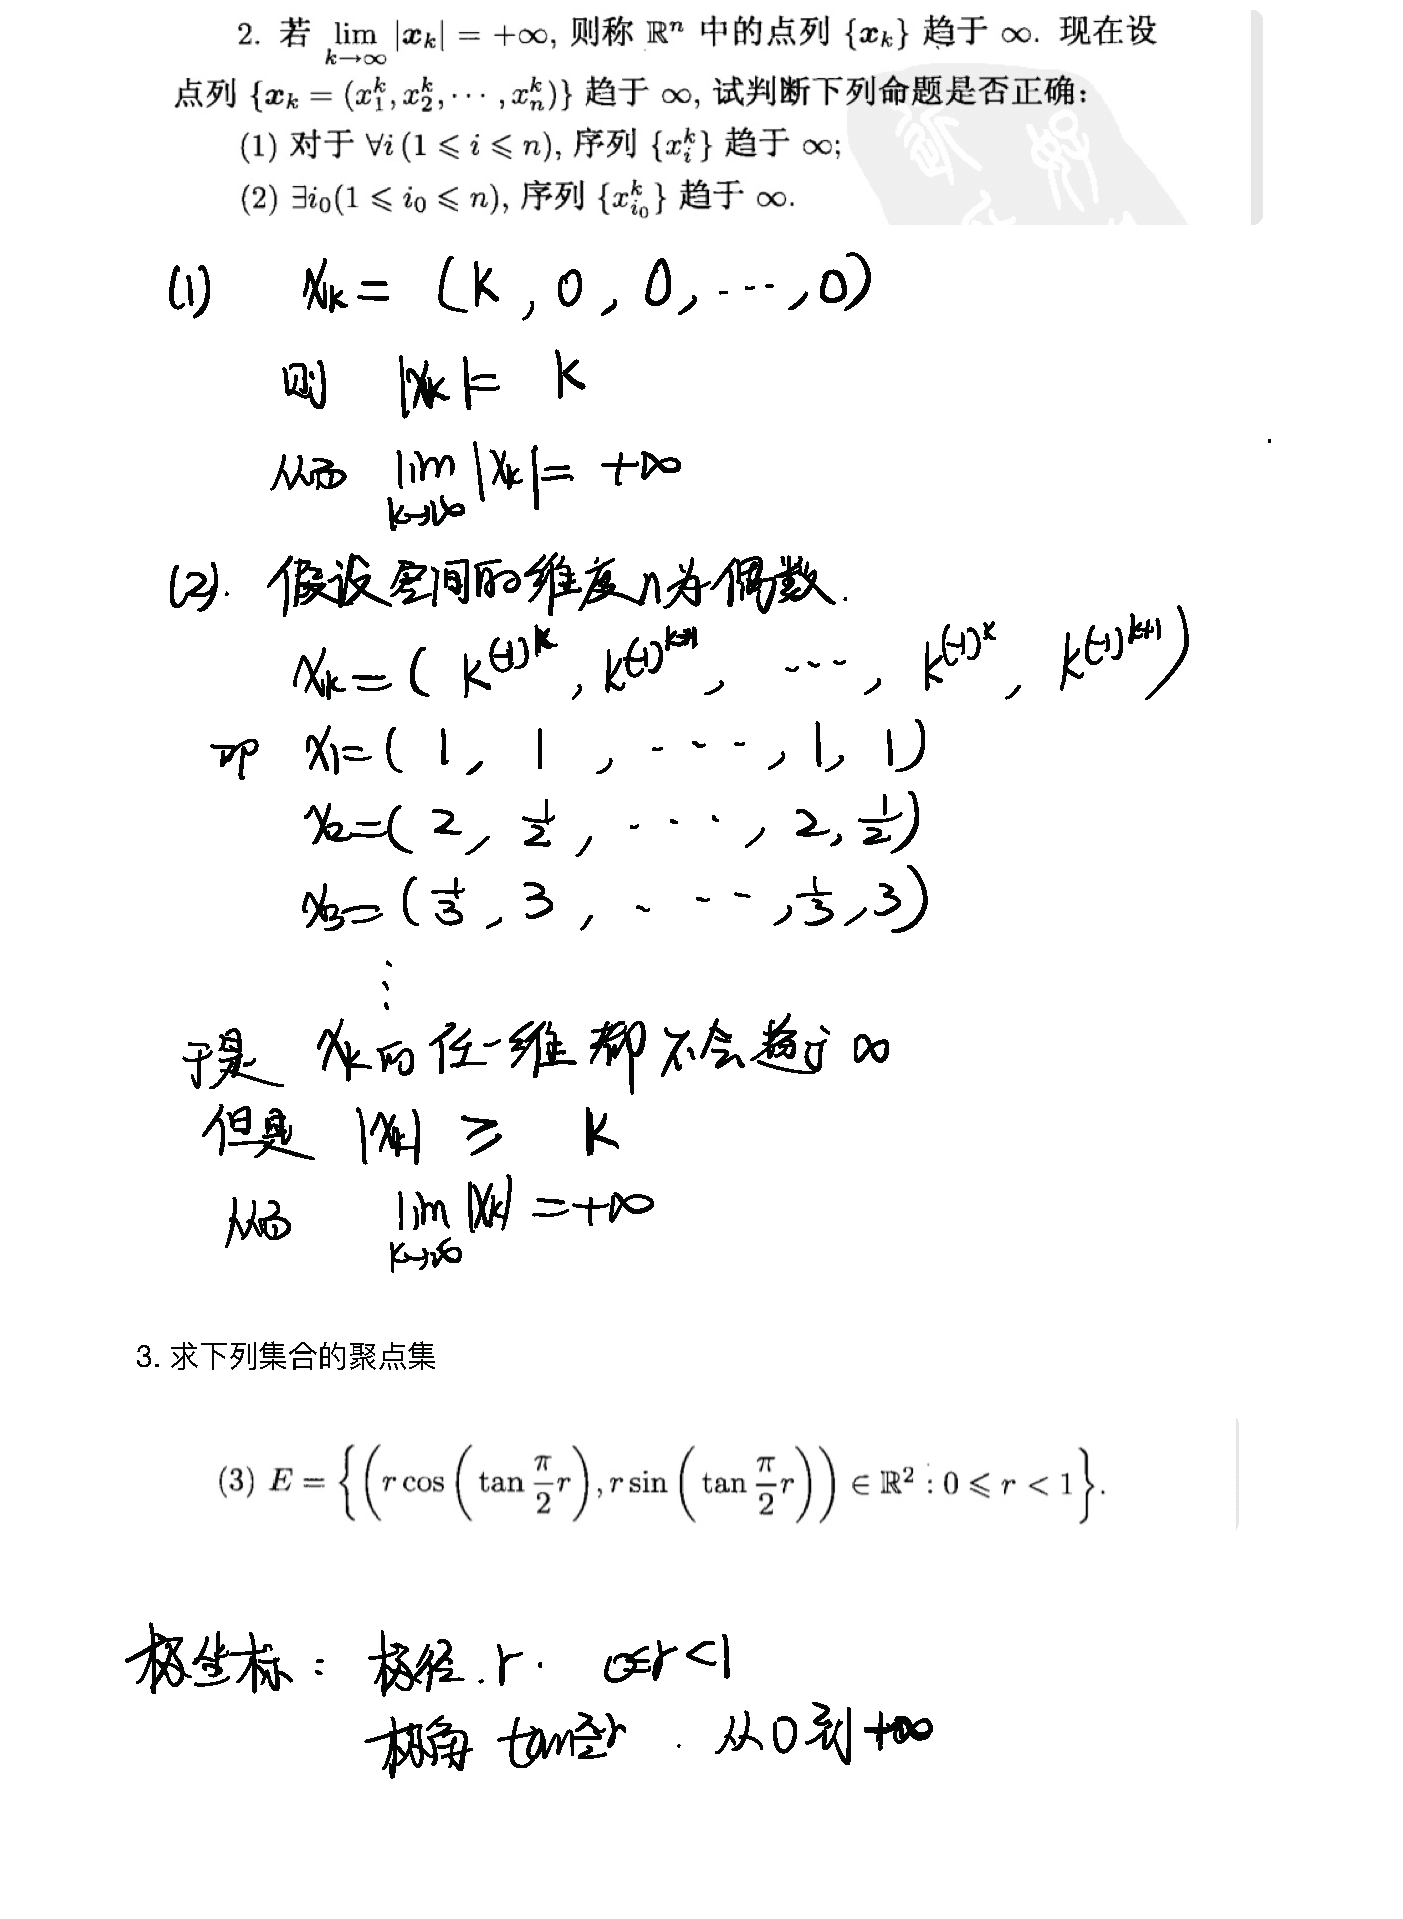 2. 若 lim_{k→∞} |x_k| = +∞, 则称 ℝⁿ 中的点列 {x_k} 趋于 ∞. 现在设
点列 {x_k = (x_1^k, x_2^k, ⋯, x_n^k)} 趋于 ∞, 试判断下列命题是否正确:
(1) 对于 ∀i (1 ⩽ i ⩽ n), 序列 {x_i^k} 趋于 ∞;
(2) ∃i_0(1 ⩽ i_0 ⩽ n), 序列 {x_{i_0}^k} 趋于 ∞.
(1) x_k = (k, 0, 0, ⋯, 0)
则 |x_k| = k
从而 lim_{k→∞} |x_k| = +∞
(2). 假设空间的维度n为偶数.
x_k = (k^{(-1)^k}, k^{(-1)^{k+1}}, ⋯, k^{(-1)^k}, k^{(-1)^{k+1}})
即 x_1 = (1, 1, ⋯, 1, 1)
x_2 = (2, 1/2, ⋯, 2, 1/2)
x_3 = (1/3, 3, ⋯, 1/3, 3)
⋮
于是 x_k的任一维都不会趋于∞
但是 |x_k| ≥ k
从而 lim_{k→∞} |x_k| = +∞
3. 求下列集合的聚点集
(3) E = {(r cos(tan π/2 r), r sin(tan π/2 r)) ∈ ℝ² : 0 ⩽ r < 1}.
极坐标: 极径. r. 0≤r<1
极角 tan π/2 r. 从0到+∞